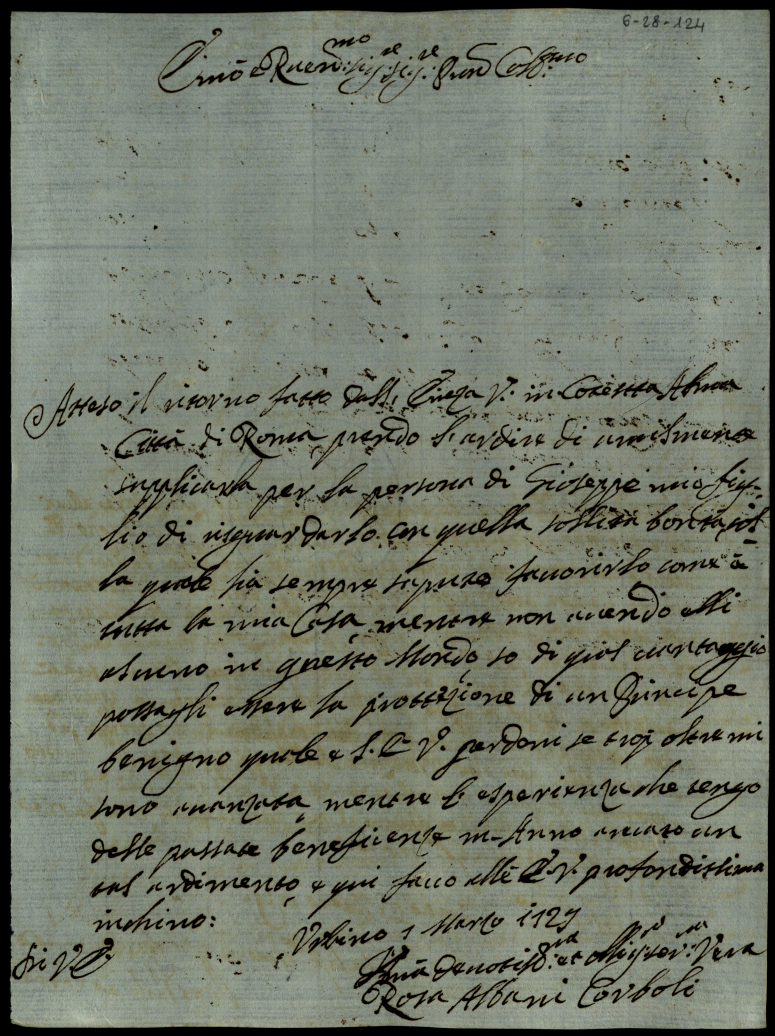 6-28-124
Emo e Ruerend.mo Sig.re Sig.re Pron Coll.mo
Atteso il ritorno fatto dall' Emza V. in Cotestta Alma
Città di Roma prendo l'ardire di umilmente
supplicarla per la persona di Gioseppe mio fig-
lio di risguardarlo con quella sollita bontà, col
la quale hà sempre saputo fauorirlo come à
tutta la mia Casa, mentre non auendo elli
alcuno in questo Mondo, so di qual uantaggio
possagli essere la prottezione di un Principe
benigno quale è l'E. V. perdoni se trop oltre mi
sono auanzata, mentre l'esperienza che tengo
delle passate beneficenze m'Anno
tal ardimento, e qui faccio all' E. V. profondissima
inchino:
Urbino 1 Marzo 1729
Di V. E.
Deuotis.ma et Oblig. ser.ra Vera
Rosa Albani Corboli